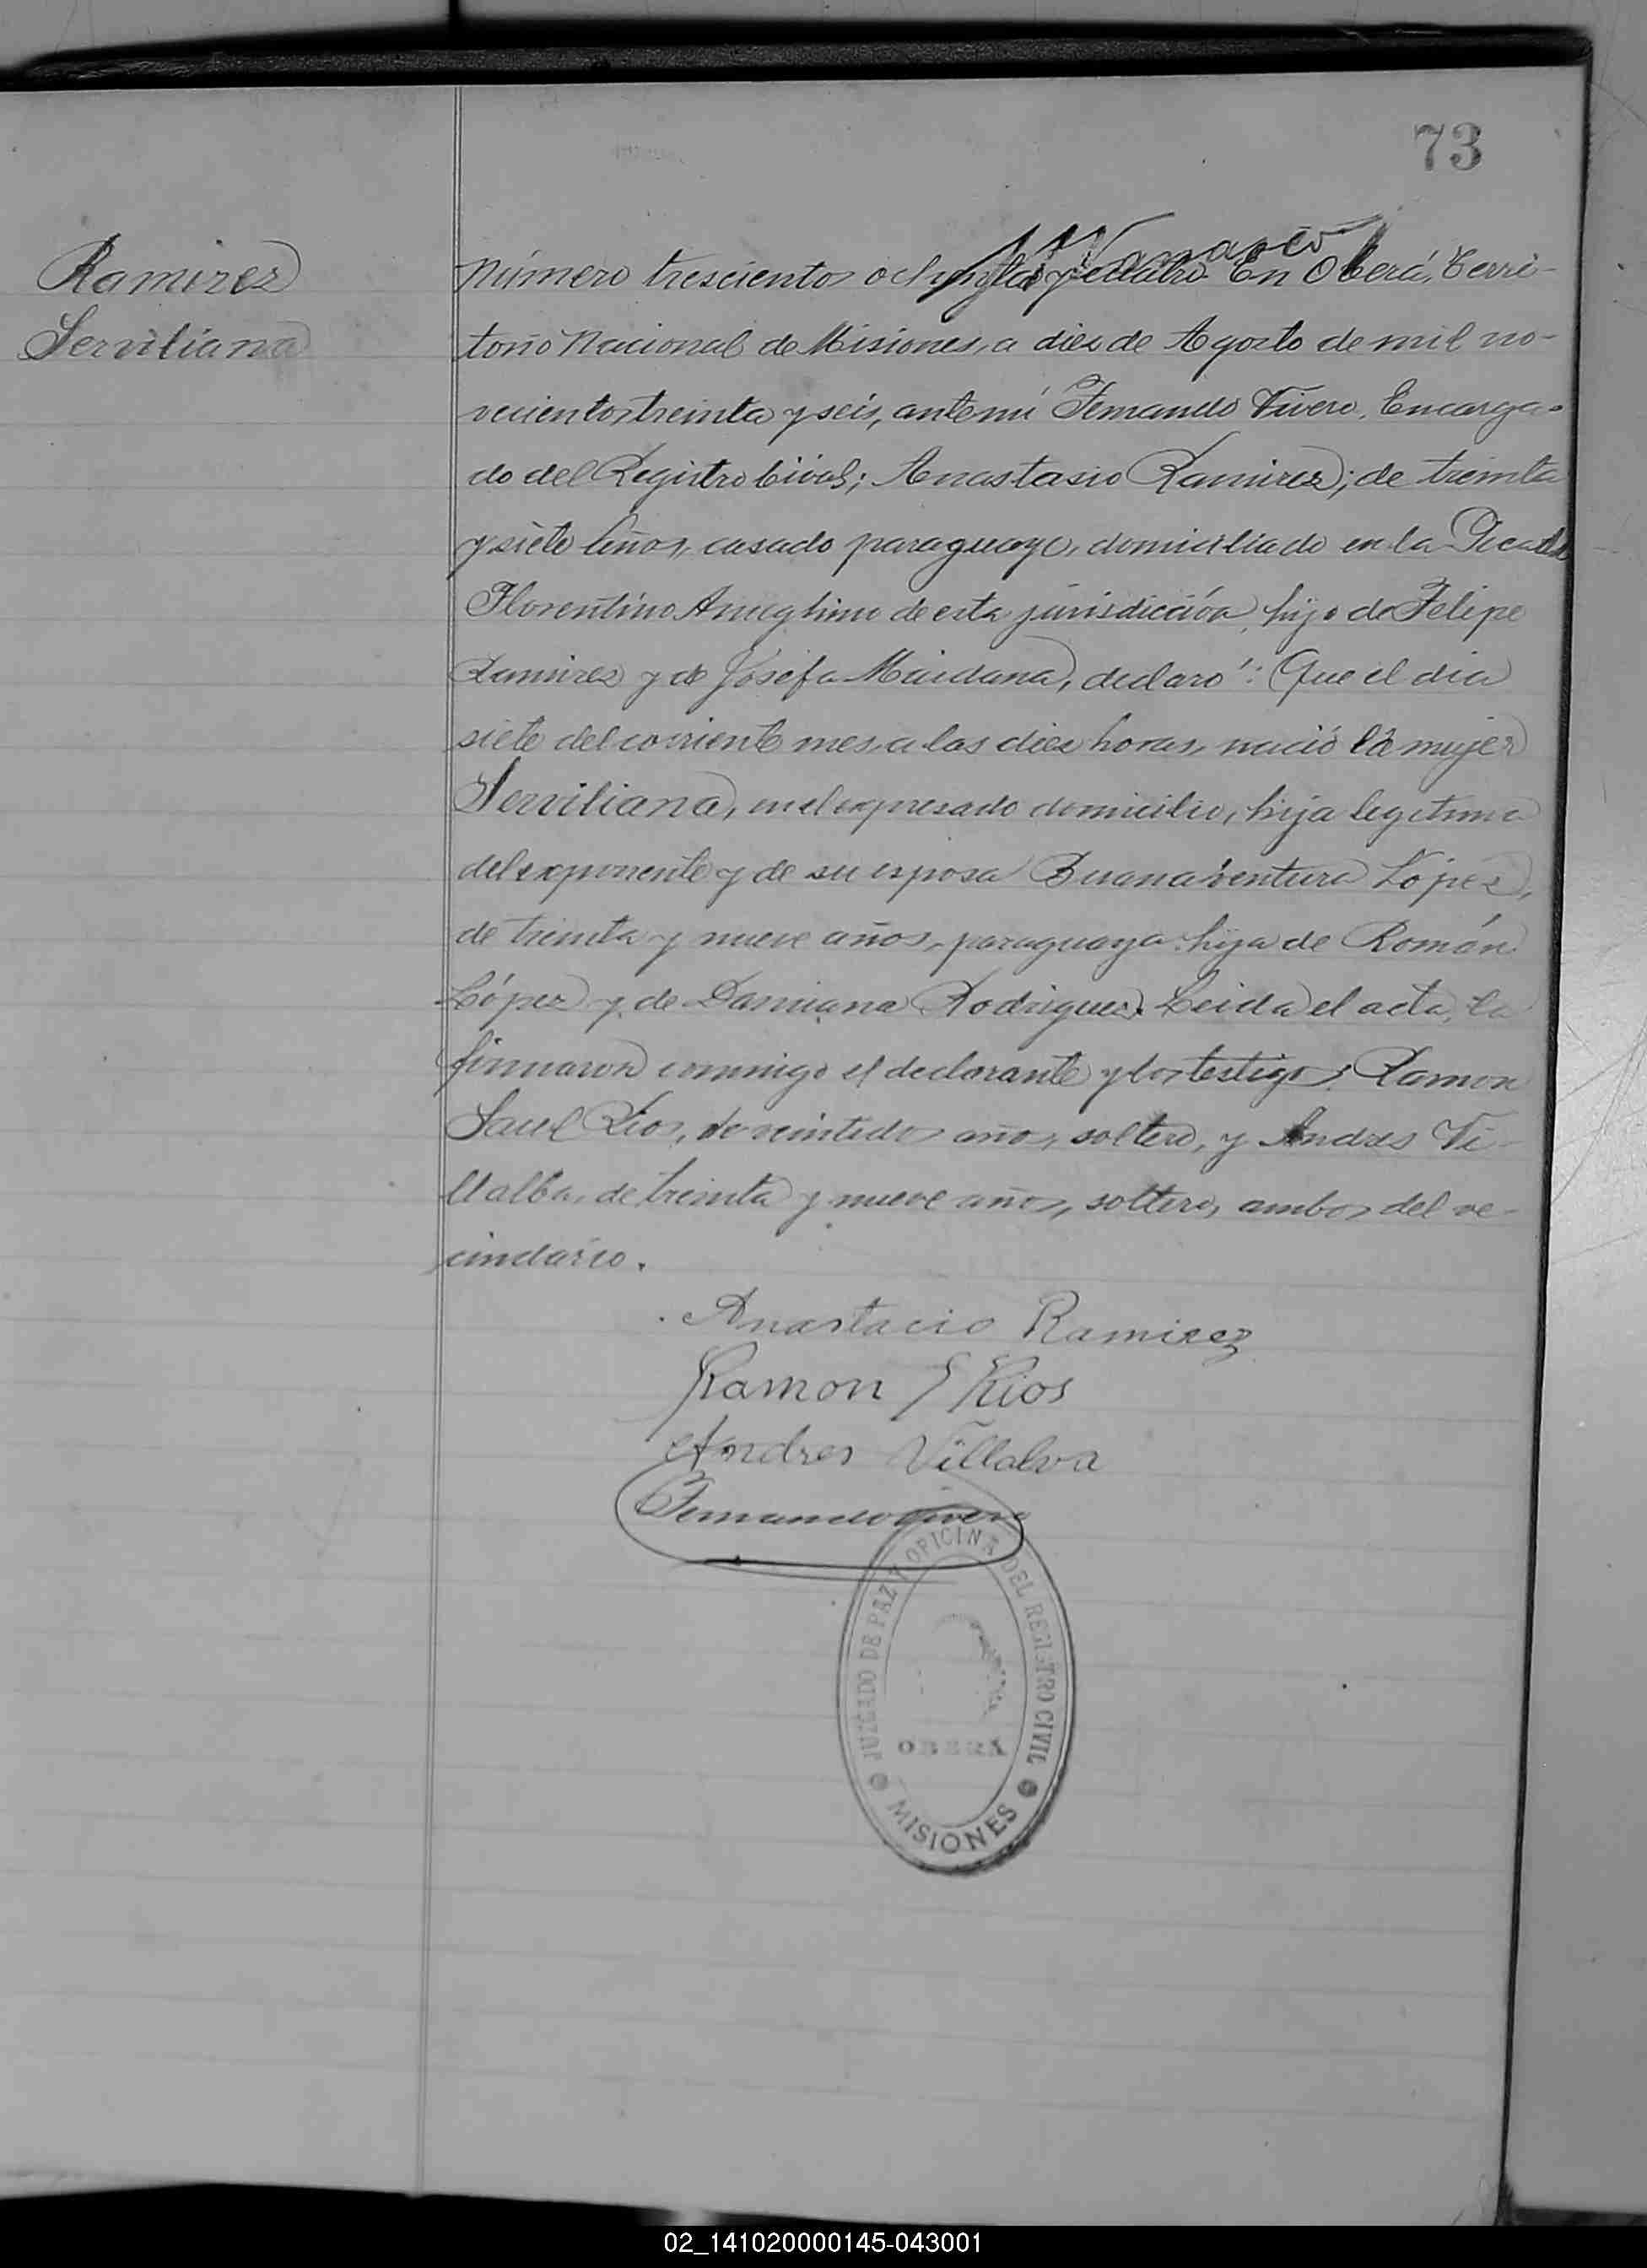 73
Ramirez
Serviliana
Número trescientos ochenta y cuatro. En Oberá, Terri-
torio Nacional de Misiones, a diez de Agosto de mil no-
vecientos treinta y seis, ante mí Fernando Vivero, Encarga-
do del Registro Civil; Anastasio Ramirez; de treinta
y siete años, casado paraguayo, domiciliado en la Picada
Florentino Ameghino de esta jurisdicción, hijo de Felipe
Ramirez y de Josefa Maidana, declaró: Que el día
siete del corriente mes, a las diez horas, nació la mujer
Serviliana, en el expresado domicilio, hija legitima
del exponente y de su esposa Buenaventura López,
de treinta y nueve años, paraguaya hija de Román
López y de Damiana Rodriguez. Leida el acta, la
firmaron conmigo el declarante y los testigos: Ramon
Saul Rios, de veintidos años, soltero, y Andres Vi-
llalba, de treinta y nueve años, soltero, ambos del ve-
cindario.
Anastacio Ramirez
Ramon S Rios
Andres Villalva
Fernando Vivero
JUZGADO DE PAZ Y OFICINA DEL REGISTRO CIVIL
OBERÁ
MISIONES
02_141020000145-043001